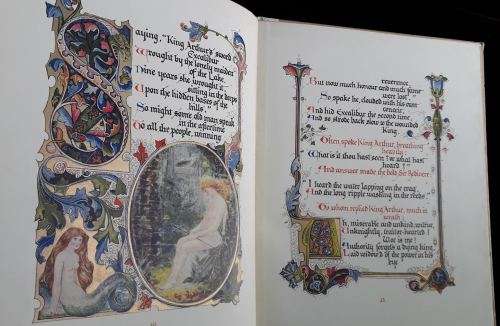 Saying, "King Arthur's sword
Excalibur
Wrought by the lonely maiden
of the Lake.
Nine years she wrought it
sitting in the deeps
Upon the hidden bases of the
hills."
So might some old man speak
in the aftertime
To all the people, winning
reverence.
But now much honour and much fame
were lost."
So spake he, clouded with his own
conceit
And hid Excalibur the second time,
And so strode back slow to the wounded
King.
Then spoke King Arthur, breathing
heavily
"What is it thou hast seen? or what hast
heard?"
And answer made the bold Sir Bedivere
"I heard the water lapping on the crag,
And the long ripple washing in the reeds."
To whom replied King Arthur, much in
wrath
"Ah, miserable and unkind, untrue,
Unknightly, traitor-hearted!
Woe is me!
Authority forgets a dying king,
Laid widow'd of the power in his
eye